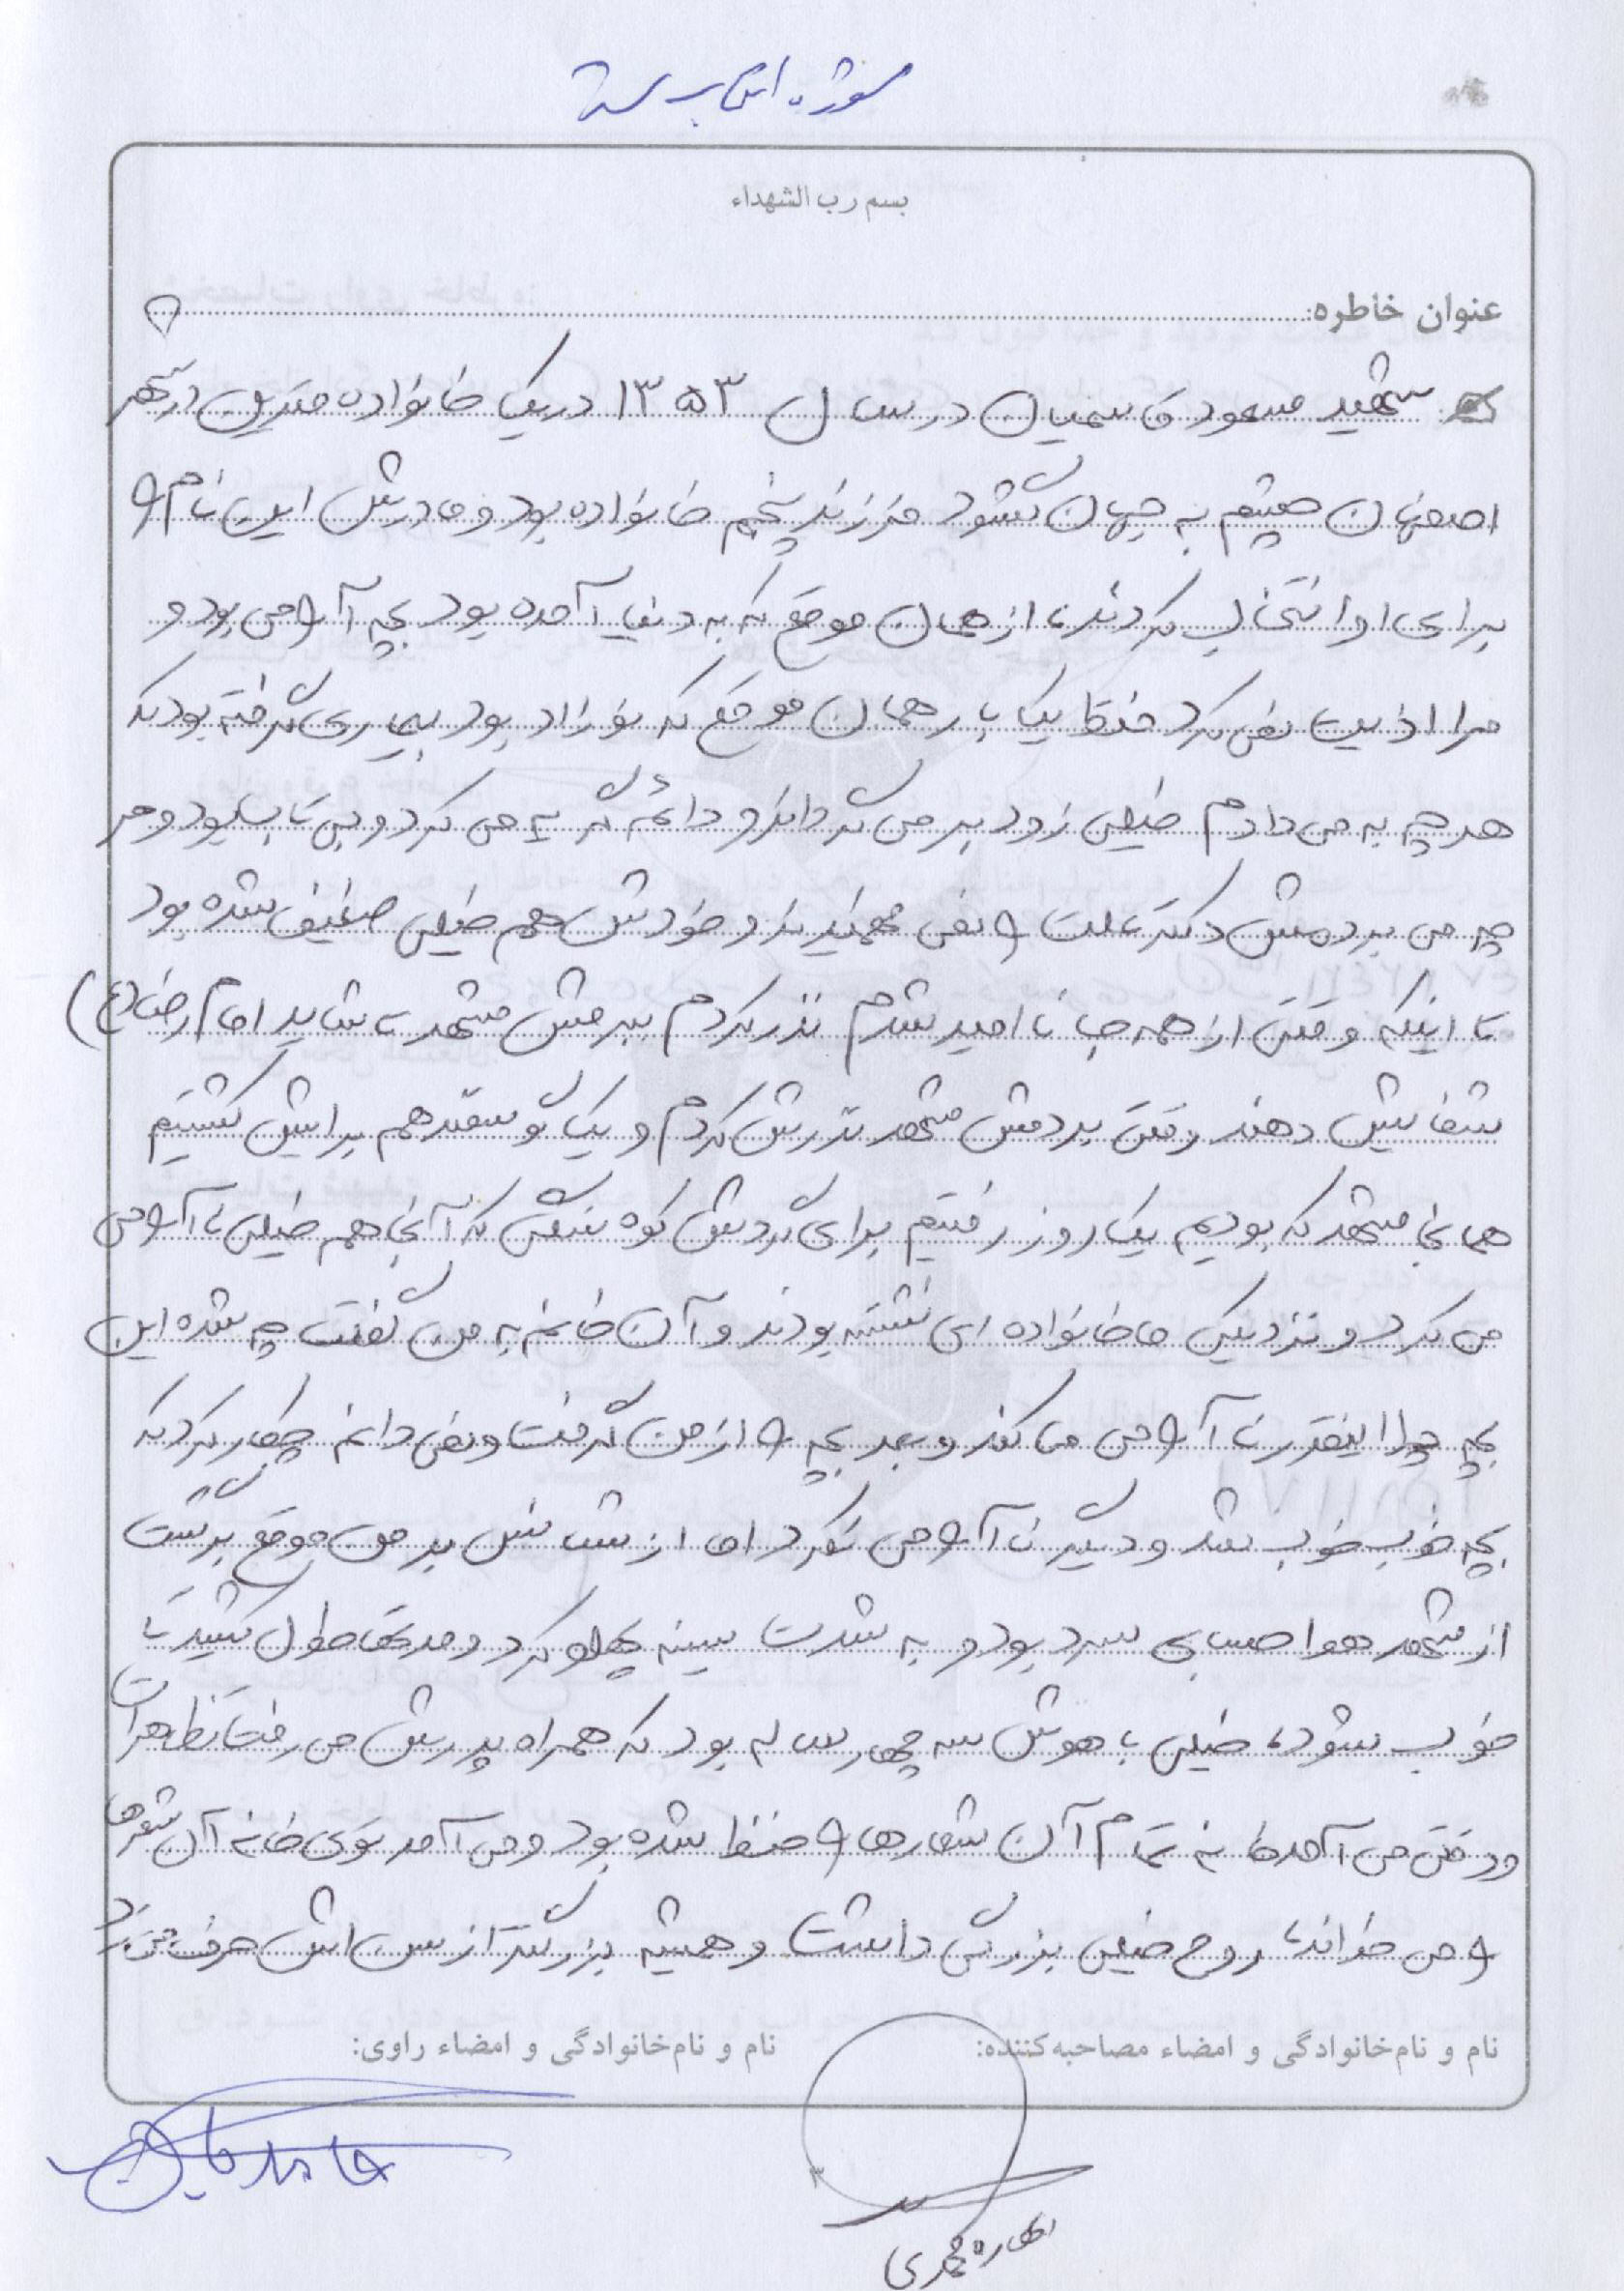 بسم رب الشهداء
عنوان خاطره:
شهید مسعود قاسمیان در سال ۱۳۵۳ در یک خانواده متدین در شهر
اصفهان چشم به جهان گشود فرزند پنجم خانواده بود و مادرش این نام را
برای او انتخاب کردند، از همان موقع که به دنیا آمده بود بچه آرامی بود و
مرا اذیت نمی کرد فقط یک بار همان موقع که نوزاد بود بیماری گرفته بود که
هر چه به می دادم خیلی زود بر می گرداند و دائم گریه می کرد و بی تاب بود و هر
چه می بردمش دکتر علت را نمی فهمیدند و خودش هم خیلی ضعیف شده بود
تا اینکه وقتی از همه جا نا امید شدم نذر کردم ببرمش مشهد تا شاید امام رضا (ع)
شفایش دهند وقتی بردمش مشهد نذرش کردم و یک گوسفند هم برایش کشتیم
همانجا مشهد که بودیم یک روز رفتیم برای گردش کوه سنگی که آنجا هم خیلی نا آرامی
می کرد و نزدیک ما خانواده ای نشسته بودند و آن خانم به من گفت چه شده این
بچه چرا اینقدر نا آرامی می کند و بعد بچه را از من گرفت و نمی دانم چکار کرد که
بچه خوب خوب شد و دیگر نا آرامی نکرد اما از شانس بد من موقع برگشت
از مشهد هوا حسابی سرد بود و به شدت سینه پهلو کرد و مدتها طول کشید تا
خوب شود، خیلی با هوش سه چهار ساله بود که همراه پدرش می رفت تظاهرات
و وقتی می آمد خانه تمام آن شعارها را حفظ شده بود و می آمد توی خانه آن شعرها
را می خواند، روح خیلی بزرگی داشت و همیشه بزرگتر از سن اش حرف می زد
نام و نام‌خانوادگی و امضاء مصاحبه‌کننده:
نام و نام‌خانوادگی و امضاء راوی:
محمدی